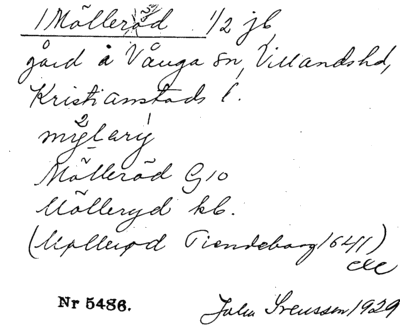 1 Mölleröd 1/2 jb,
gård å Vånga sn, Villands hd,
Kristianstads l.
Mölleröd G10
Mölleryd kb.
(Mølleröd Tiendeborg 1641)
Nr 5486. John Svensson 1929